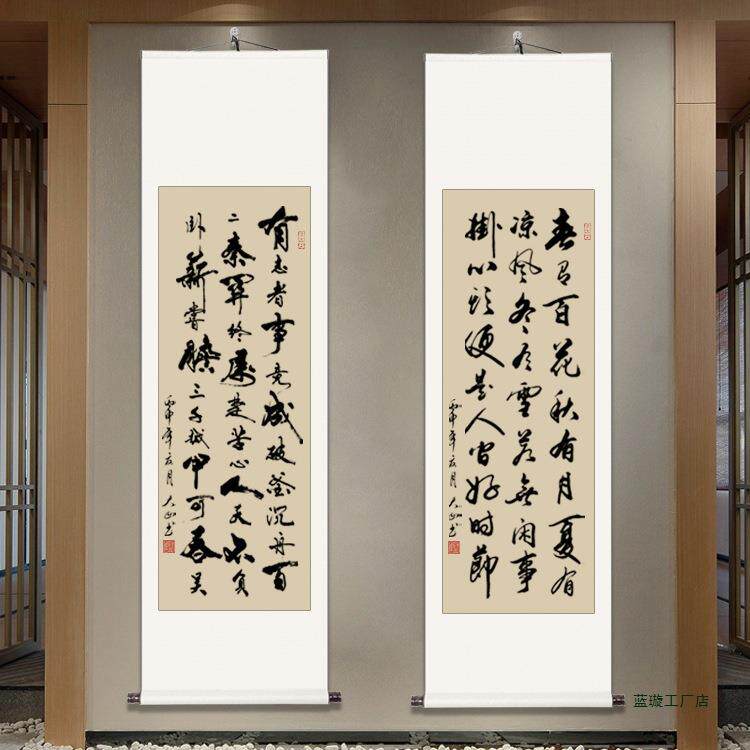 有志者事竟成破釜沉舟百
二秦関终属楚苦心人天不负
卧薪嘗膽三千越甲可吞吴
丙申年
月
春有百花秋有月夏有
凉风冬有雪若無闲事
掛心头便是人间好时節
丙申年
月
蓝璇工厂店